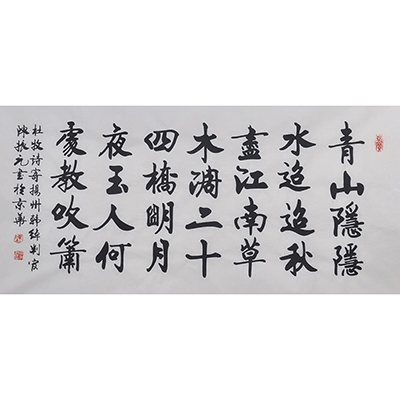 青山隱隱
水迢迢秋
盡江南草
木凋二十
四橋明月
夜玉人何
處教吹簫
杜牧诗寄揚州韩綽判官
陳振元書於京華